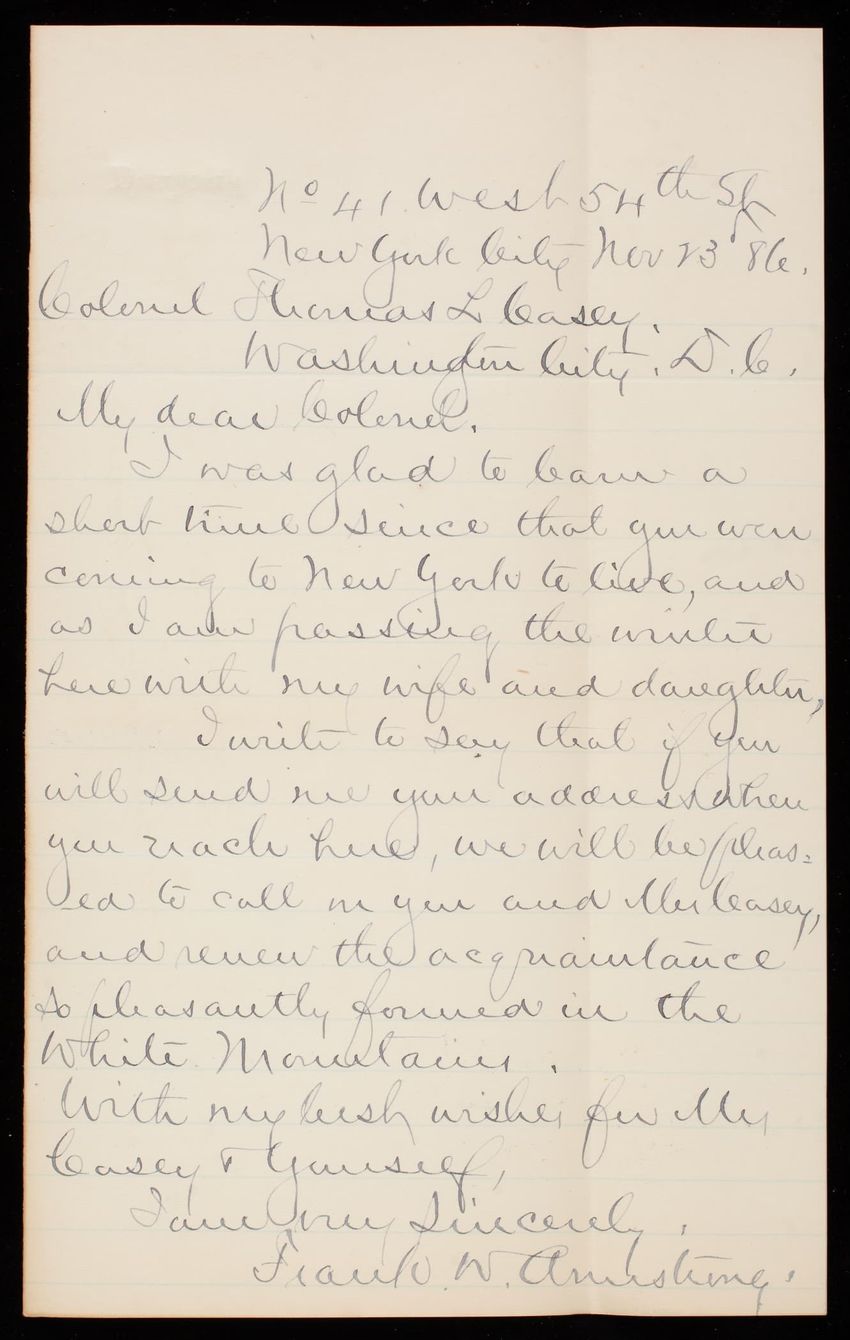 No 41 West 54th St
New York City Nov 23 '86.
Colonel Thomas L Casey.
Washington City. D.C.
My dear Colonel.
I was glad to learn a
short time since that you were
coming to New York to live, and
as I am passing the winter
here with my wife and daughter,
I write to say that if you
will send me your address when
you reach here, we will be pleas=
ed to call on you and Mrs Casey,
and renew the acquaintance
so pleasantly formed in the
White Mountains.
With my best wishes for Mrs
Casey & Yourself,
I am very Sincerely.
Frank W. Armstrong.